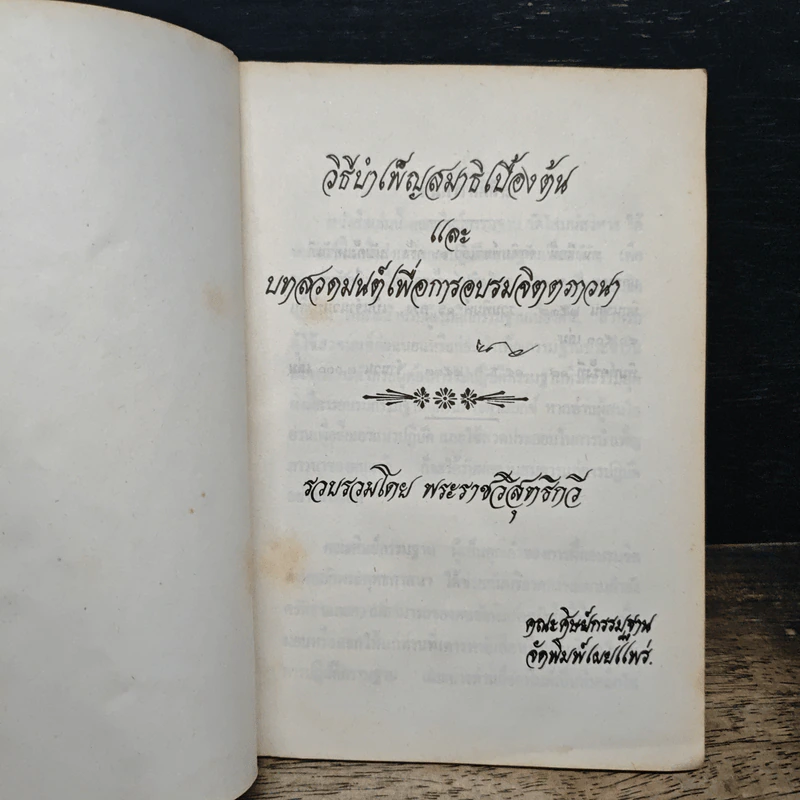 วิธีบำเพ็ญสมาธิเบื้องต้น
และ
บทสวดมนต์เพื่อการอบรมจิตตภาวนา
รวบรวมโดย พระราชวิสุทธิกวี
คณะศิษย์กรรมฐาน
จัดพิมพ์เผยแพร่.